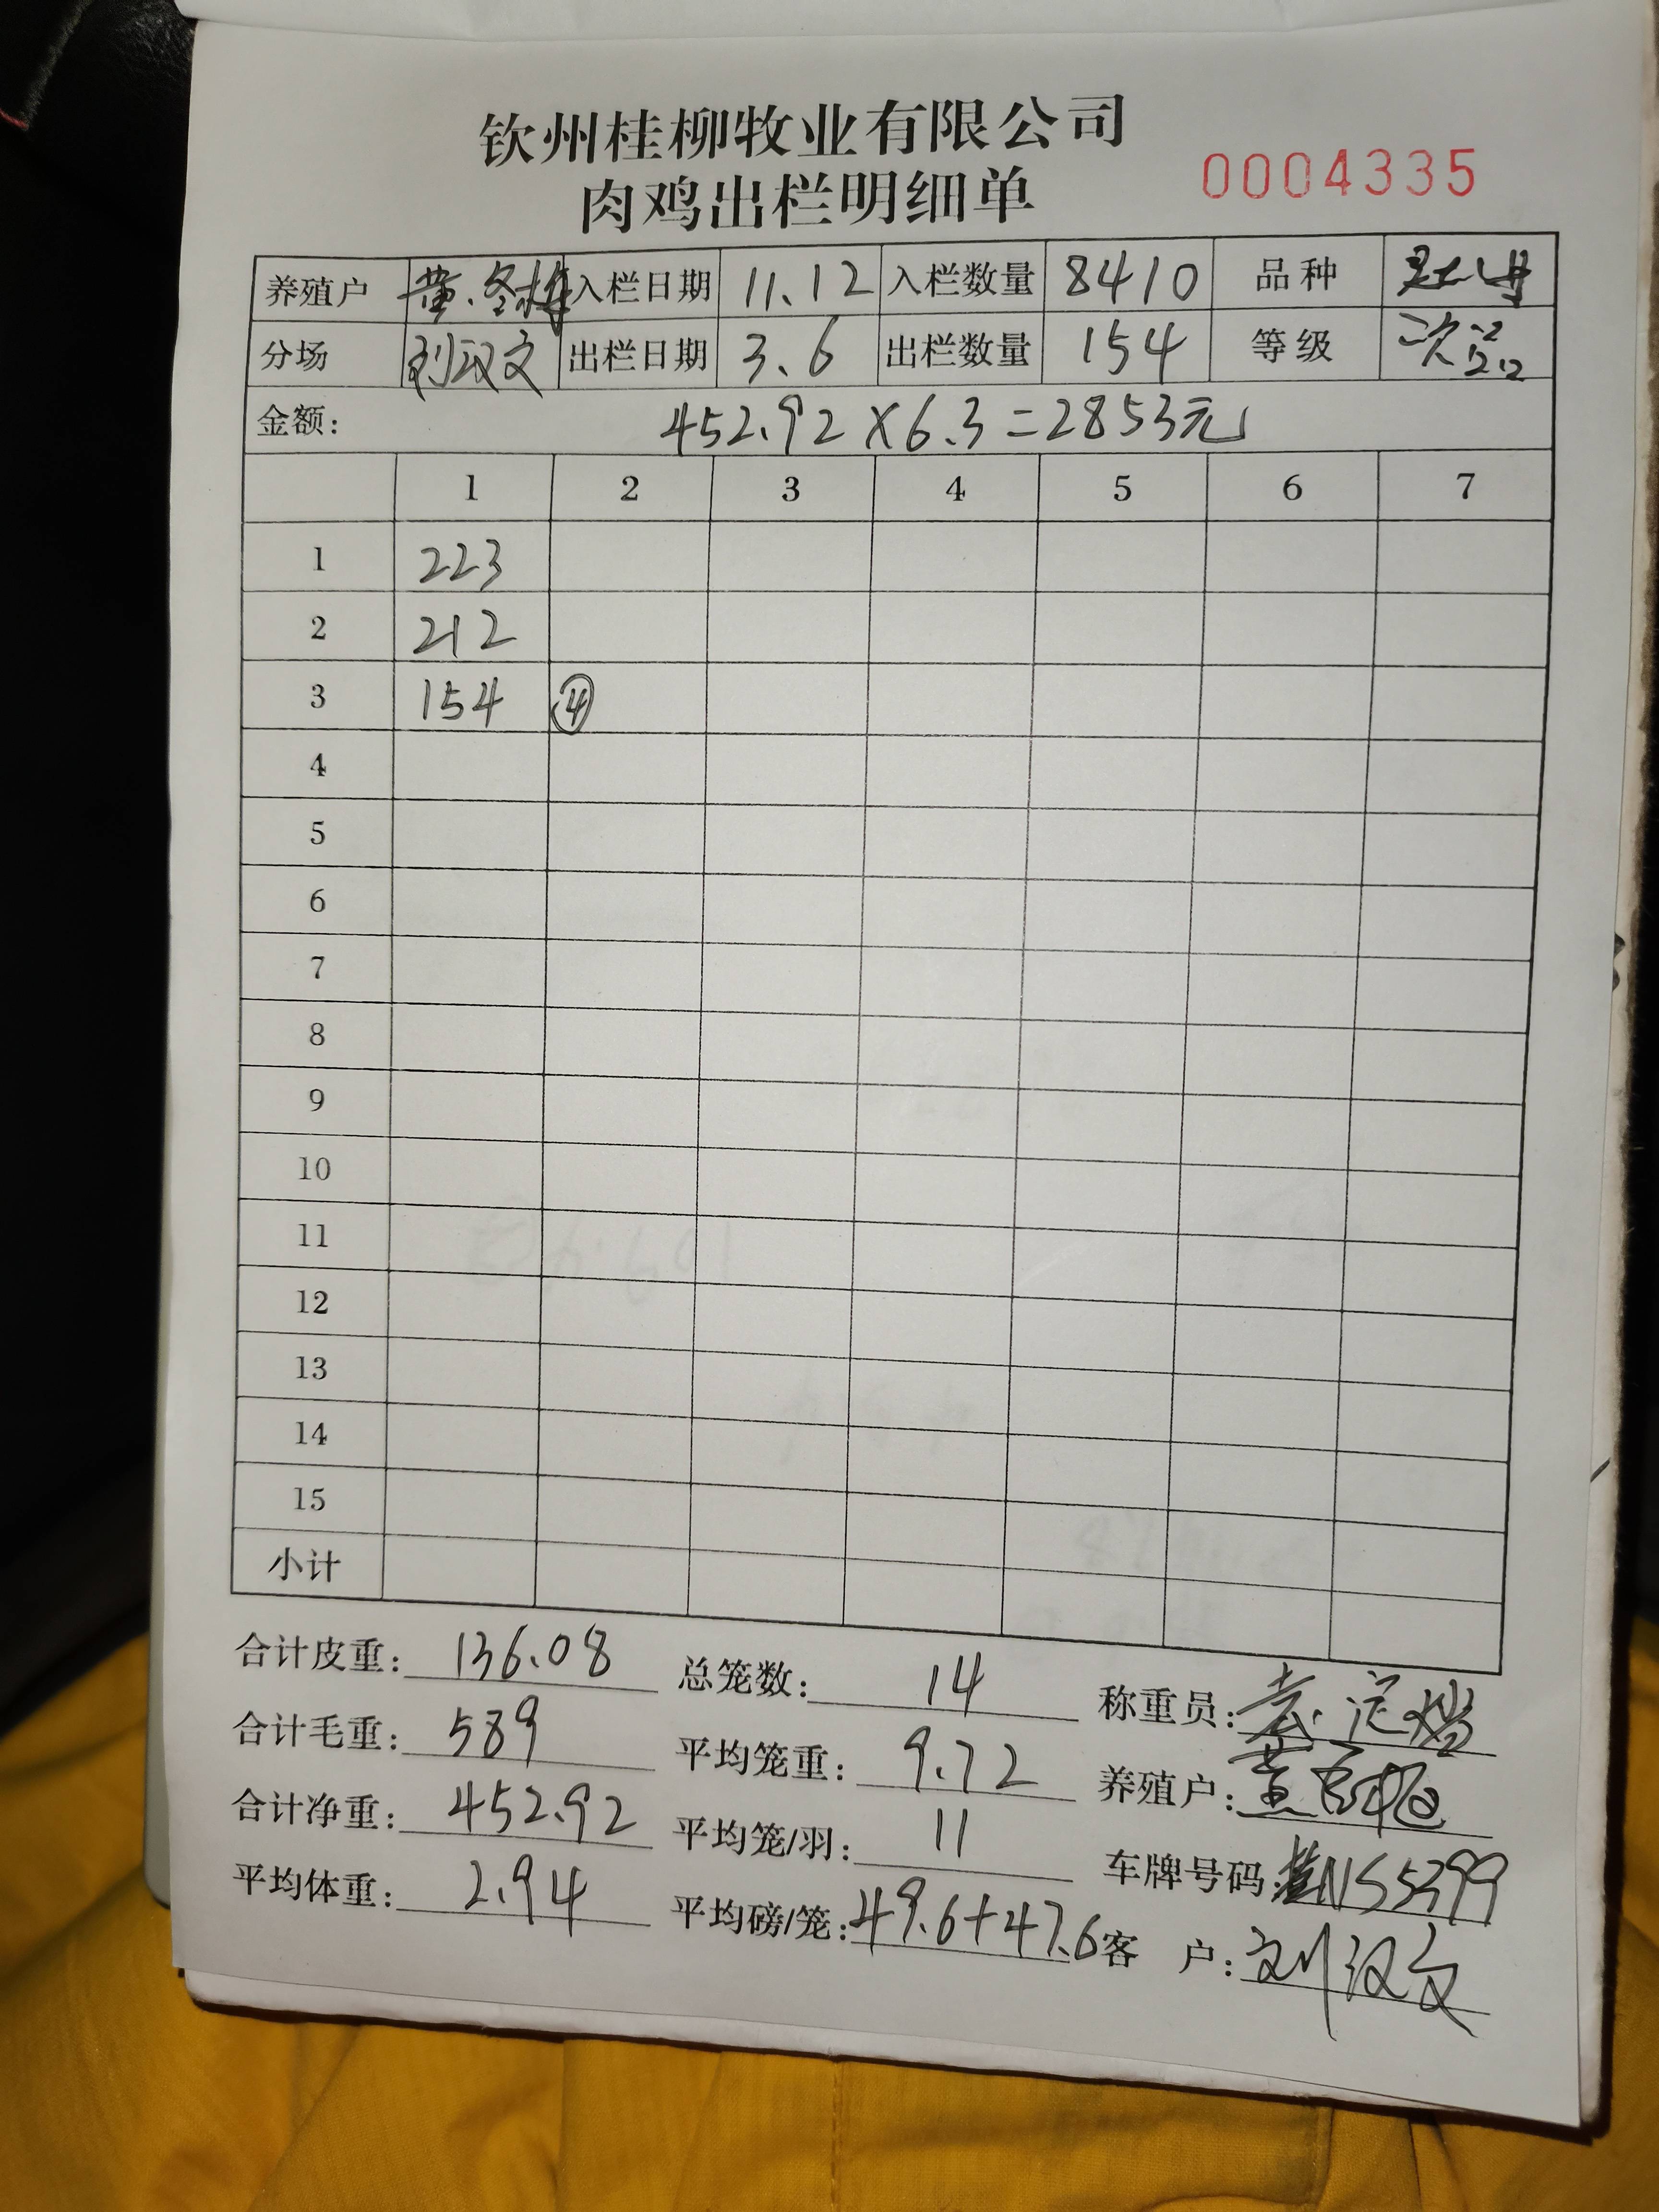 钦州桂柳牧业有限公司
肉鸡出栏明细单
0004335
养殖户 黄冬梅 入栏日期 11.12 入栏数量 8410 品种
分场 刘汉文 出栏日期 3.6 出栏数量 154 等级 次品
金额: 452.92×6.3=2853元
1 2 3 4 5 6 7
1 223
2 212
3 154 ④
4
5
6
7
8
9
10
11
12
13
14
15
小计
合计皮重: 136.08 总笼数: 14 称重员:
合计毛重: 589 平均笼重: 9.72 养殖户: 黄
合计净重: 452.92 平均笼/羽: 11 车牌号码: NS5399
平均体重: 2.94 平均磅/笼: 49.6+47.6 客 户: 刘汉文